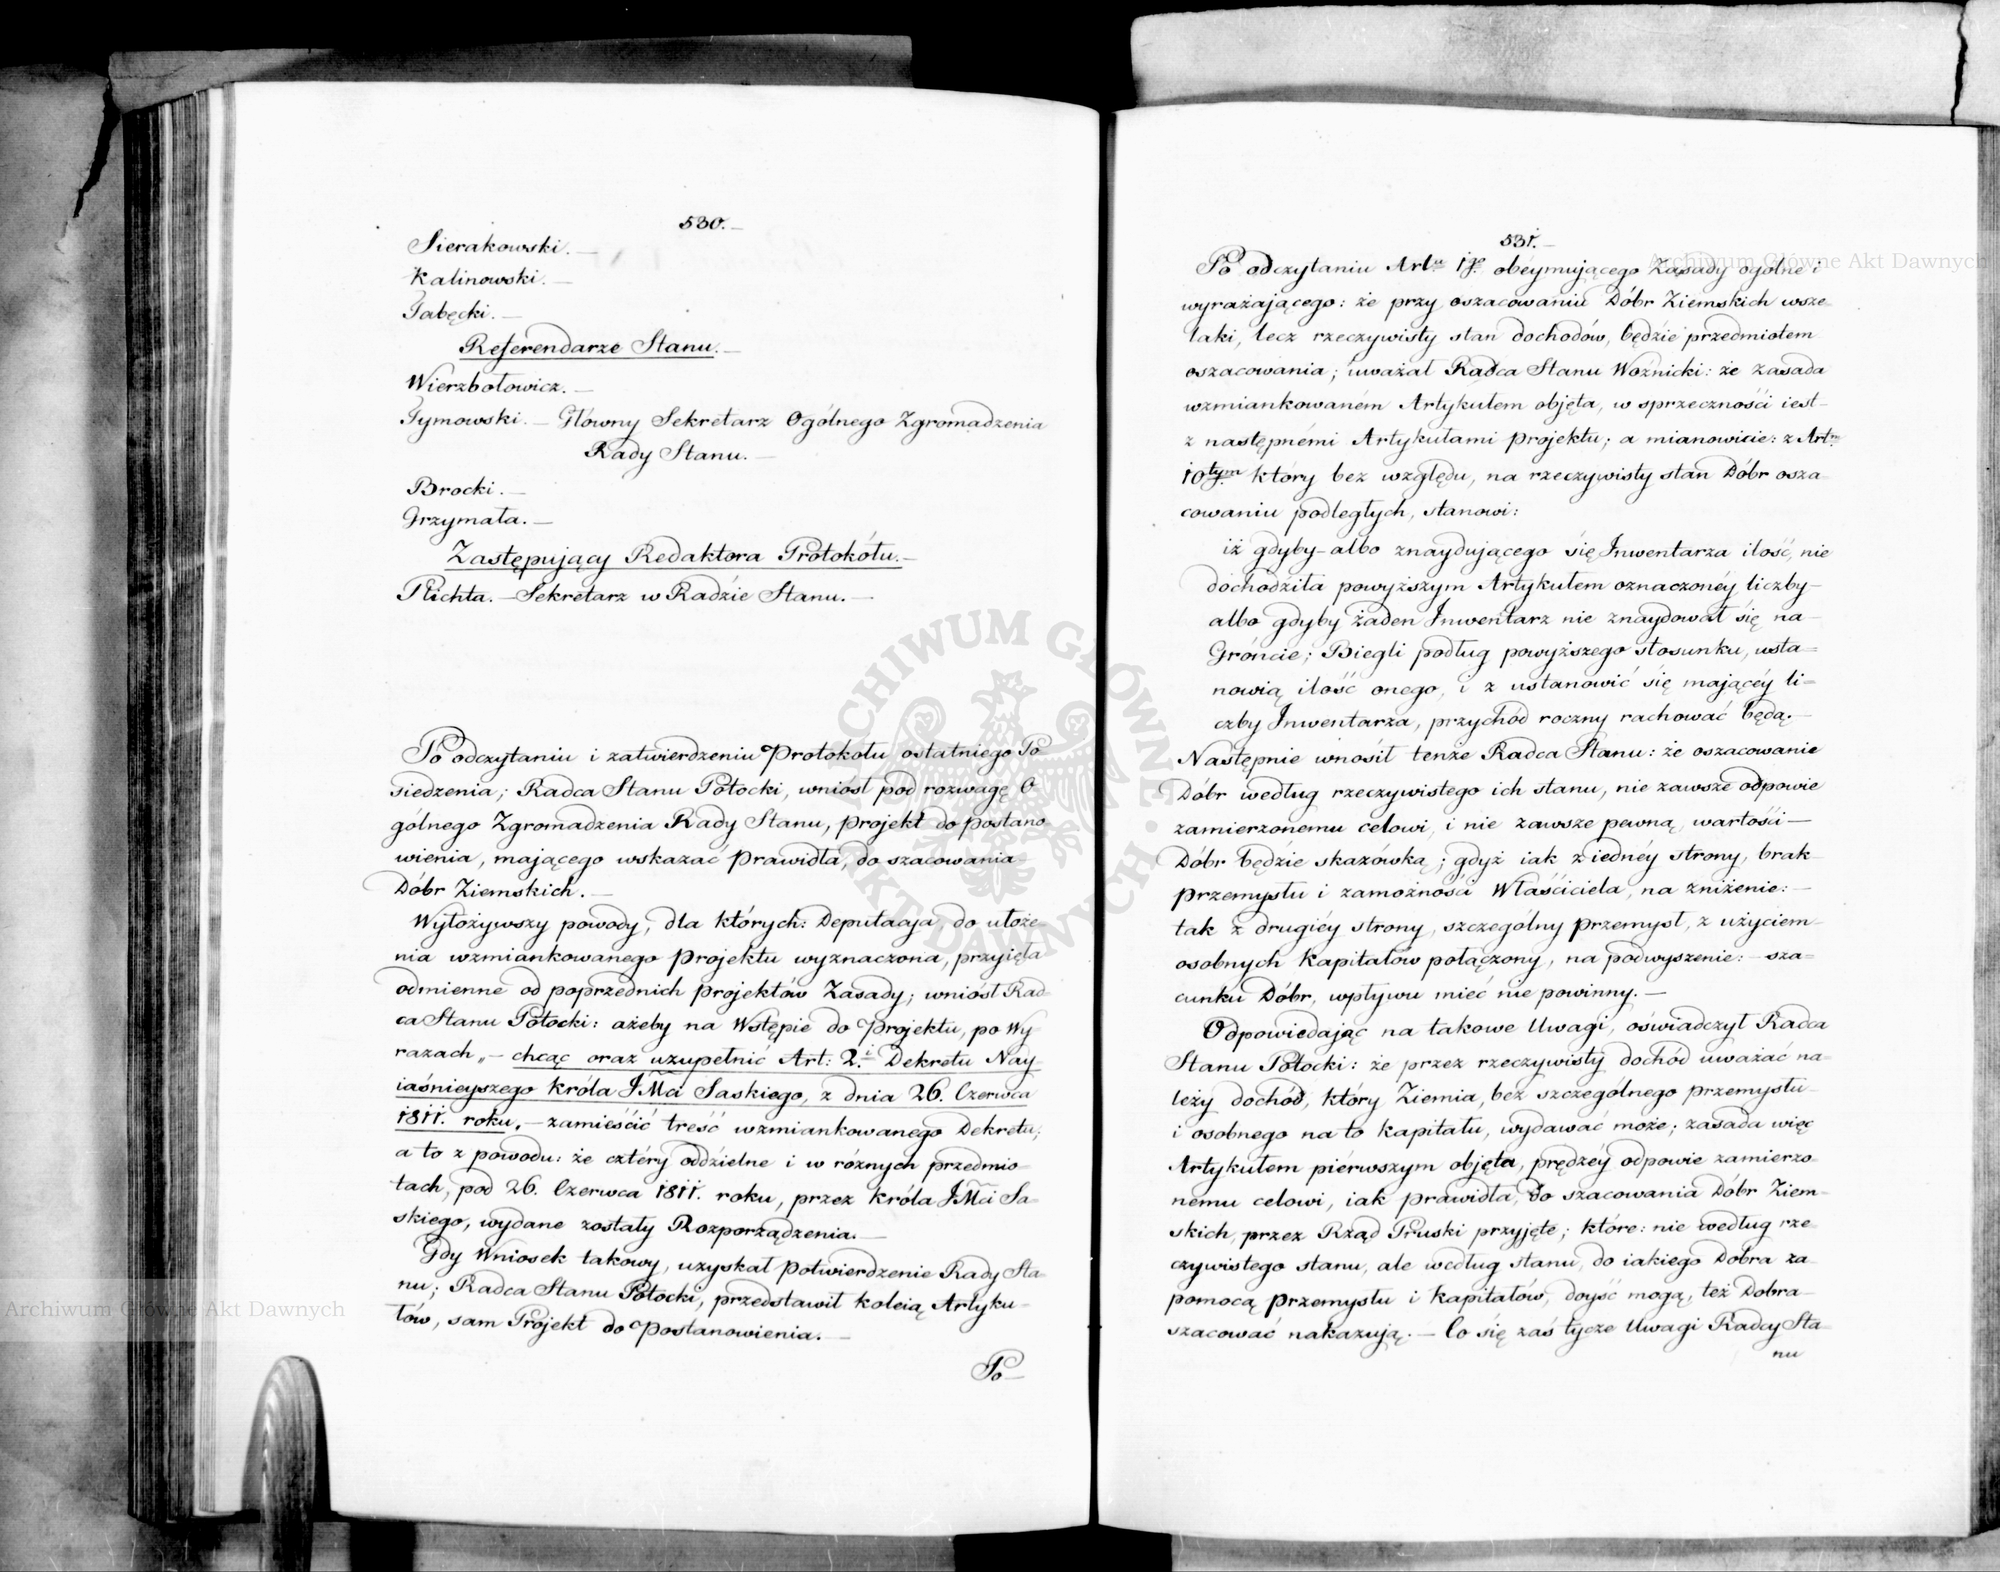 530.—
Sierakowski.—
Kalinowski.—
Jabęcki.—
Referendarze Stanu.—
Wierzbołowicz.—
Tymowski.— Główny Sekretarz Ogólnego Zgromadzenia
Rady Stanu.—
Brocki.—
Grzymała.—
Zastępujący Redaktora Protokółu.—
Plichta.—Sekretarz w Radzie Stanu.—
Po odczytaniu i zatwierdzeniu Protokołu ostatniego Po
siedzenia; Radca Stanu Potocki, wniósł pod rozwagę O-
gólnego Zgromadzenia Rady Stanu, projekt do postano
wienia, mającego wskazać Prawidła, do szacowania
Dóbr Ziemskich.—
Wyłożywszy powody, dla których: Deputacja, do ułoże-
nia wzmiankowanego Projektu wyznaczona, przyięła
odmienne od poprzednich projektów Zasady; wniósł Rad-
ca Stanu Potocki: ażeby na Wstępie do Projektu, po Wy
razach „— chcąc oraz uzupełnić Art: 2.i Dekretu Nay-
iaśnieyszego Króla JMci Saskiego, z dnia 26. Czerwca
1811. roku.— zamieścić treść wzmiankowanego Dekretu;
a to z powodu: że cztéry oddzielne i w różnych przedmio-
tach, pod 26. Czerwca 1811. roku, przez Króla JMci Sa-
skiego, wydane zostały Rozporządzenia.—
Gdy Wniosek takowy, uzyskał potwierdzenie Rady Sta-
nu; Radca Stanu Potocki, przedstawił koleią Artyku-
łów, sam Projekt do Postanowienia.—
Po—
531.—
Po odczytaniu Artu 1go obéymującego Zasady ogólne i
wyrażającego: że przy oszacowaniu Dóbr Ziemskich wsze-
laki, lecz rzeczywisty stan dochodów, będzie przedmiotem
oszacowania; uważał Radca Stanu Woźnicki: że zasada
wzmiankowaném Artykułem objęta, w sprzeczności iest-
z następnémi Artykułami projektu; a mianowicie: z Artm
10tym który bez względu, na rzeczywisty stan Dóbr osza-
cowaniu podległych, stanowi:
iż gdyby-albo znaydującego się Inwentarza ilość, nie
dochodziła powyższym Artykułem oznaczonéy liczby-
albo gdyby żaden Inwentarz nie znaydował się na-
Gróncie; Biegli podług powyższego stosunku, usta=
nowią ilość onego, i z ustanowić się mającéy li=
czby Inwentarza, przychód roczny rachować będą.—
Następnie wnosił tenże Radca Stanu: że oszacowanie
Dóbr według rzeczywistego ich stanu, nie zawsze odpowie
zamierzonemu celowi, i nie zawsze pewną, wartości—
Dóbr będzie skazówką; gdyż iak z iednéy strony, brak-
przemysłu i zamożności Właściciela, na zniżenie:—
tak z drugiéy strony, szczególny przemysł, z użyciem-
osobnych kapitałów połączony, na podwyszenie:— sza=
cunku Dóbr, wpływu mieć nie powinny.—
Odpowiedając na takowe Uwagi, oświadczył Radca
Stanu Potocki: że przez rzeczywisty dochód uważać na-
leży dochód, który Ziemia, bez szczególnego przemysłu-
i osobnego na to kapitału, wydawać może; zasada więc
Artykułem piérwszym objęta, prędzéy odpowie zamierzo-
nemu celowi, iak prawidła, do szacowania Dóbr Ziem-
skich, przez Rząd Pruski przyjęte; które: nie według rze-
czywistego stanu, ale według stanu, do iakiego Dobra za
pomocą przemysłu i kapitałów, doyść mogą, też Dobra—
szacować nakazują.— Co się zaś tycze Uwagi Radcy Sta-
nu
Archiwum Główne Akt Dawnych
Archiwum Główne Akt Dawnych
ARCHIWUM GŁÓWNE AKT DAWNYCH